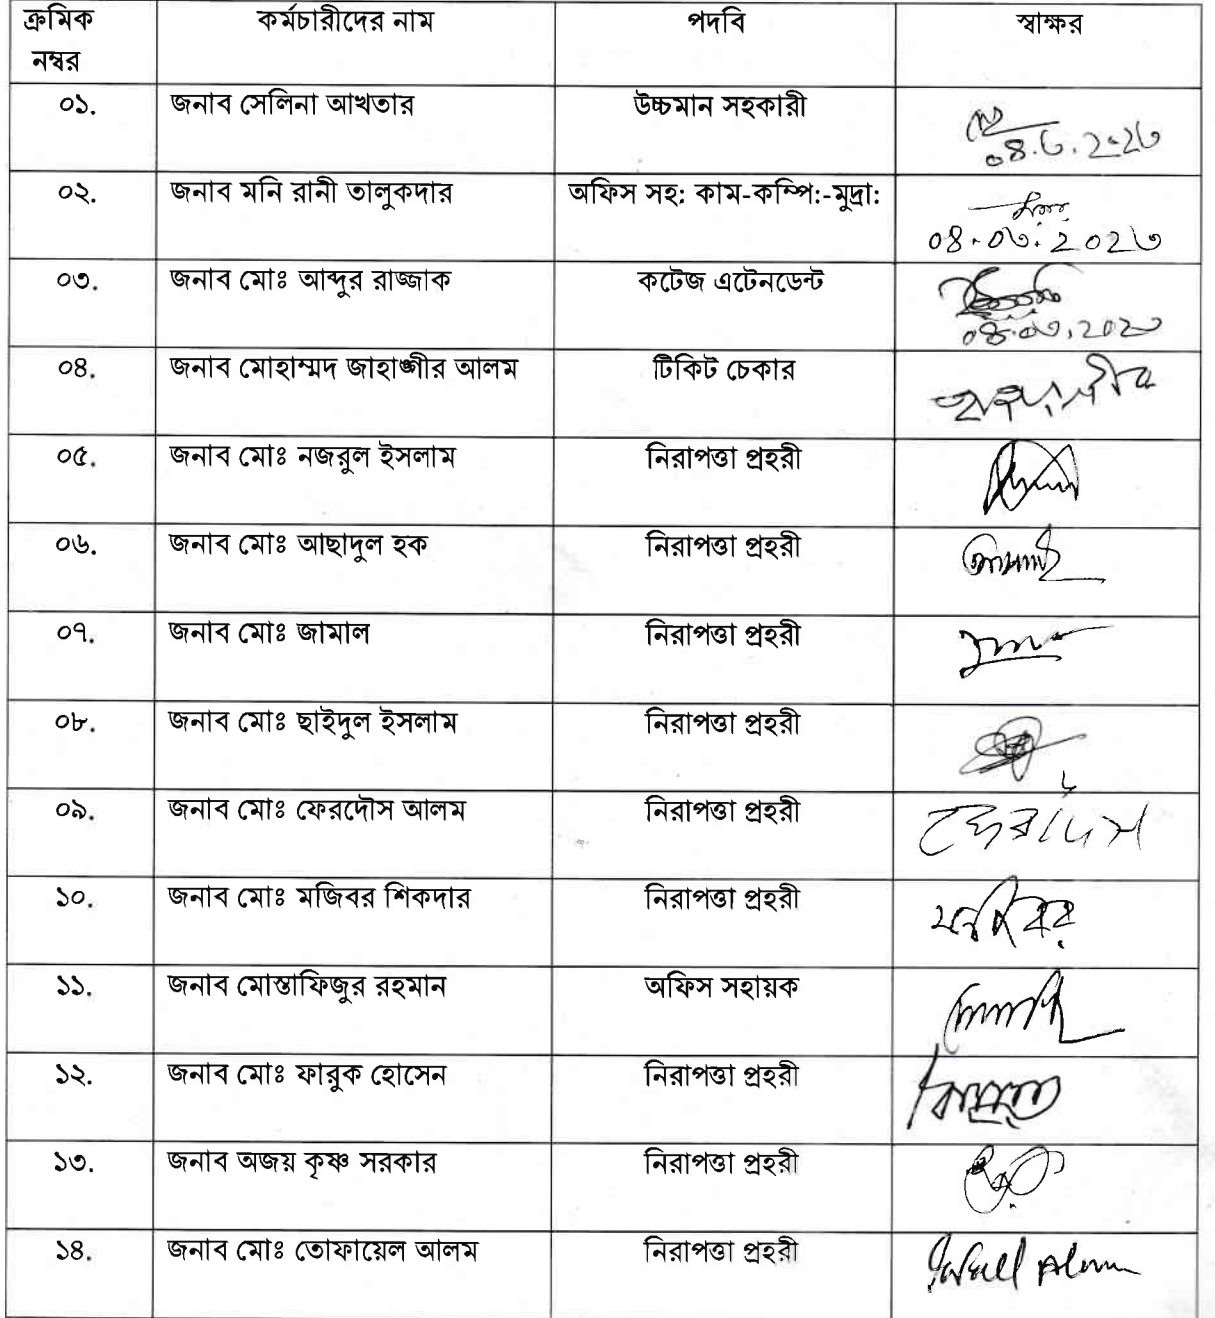 ক্রমিক নম্বর কর্মচারীদের নাম পদবি স্বাক্ষর
০১. জনাব সেলিনা আখতার উচ্চমান সহকারী
০৪.৩.২০২৩
০২. জনাব মনি রানী তালুকদার অফিস সহ: কাম-কম্পি:-মুদ্রা:
০৪.০৩.২০২৩
০৩. জনাব মোঃ আব্দুর রাজ্জাক কটেজ এটেনডেন্ট
০৪.০৩.২০২৩
০৪. জনাব মোহাম্মদ জাহাঙ্গীর আলম টিকিট চেকার
০৫. জনাব মোঃ নজরুল ইসলাম নিরাপত্তা প্রহরী
০৬. জনাব মোঃ আছাদুল হক নিরাপত্তা প্রহরী
০৭. জনাব মোঃ জামাল নিরাপত্তা প্রহরী
০৮. জনাব মোঃ ছাইদুল ইসলাম নিরাপত্তা প্রহরী
০৯. জনাব মোঃ ফেরদৌস আলম নিরাপত্তা প্রহরী ফেরদৌস
১০. জনাব মোঃ মজিবর শিকদার নিরাপত্তা প্রহরী মজিবর
১১. জনাব মোস্তাফিজুর রহমান অফিস সহায়ক
১২. জনাব মোঃ ফারুক হোসেন নিরাপত্তা প্রহরী
১৩. জনাব অজয় কৃষ্ণ সরকার নিরাপত্তা প্রহরী
১৪. জনাব মোঃ তোফায়েল আলম নিরাপত্তা প্রহরী Alam